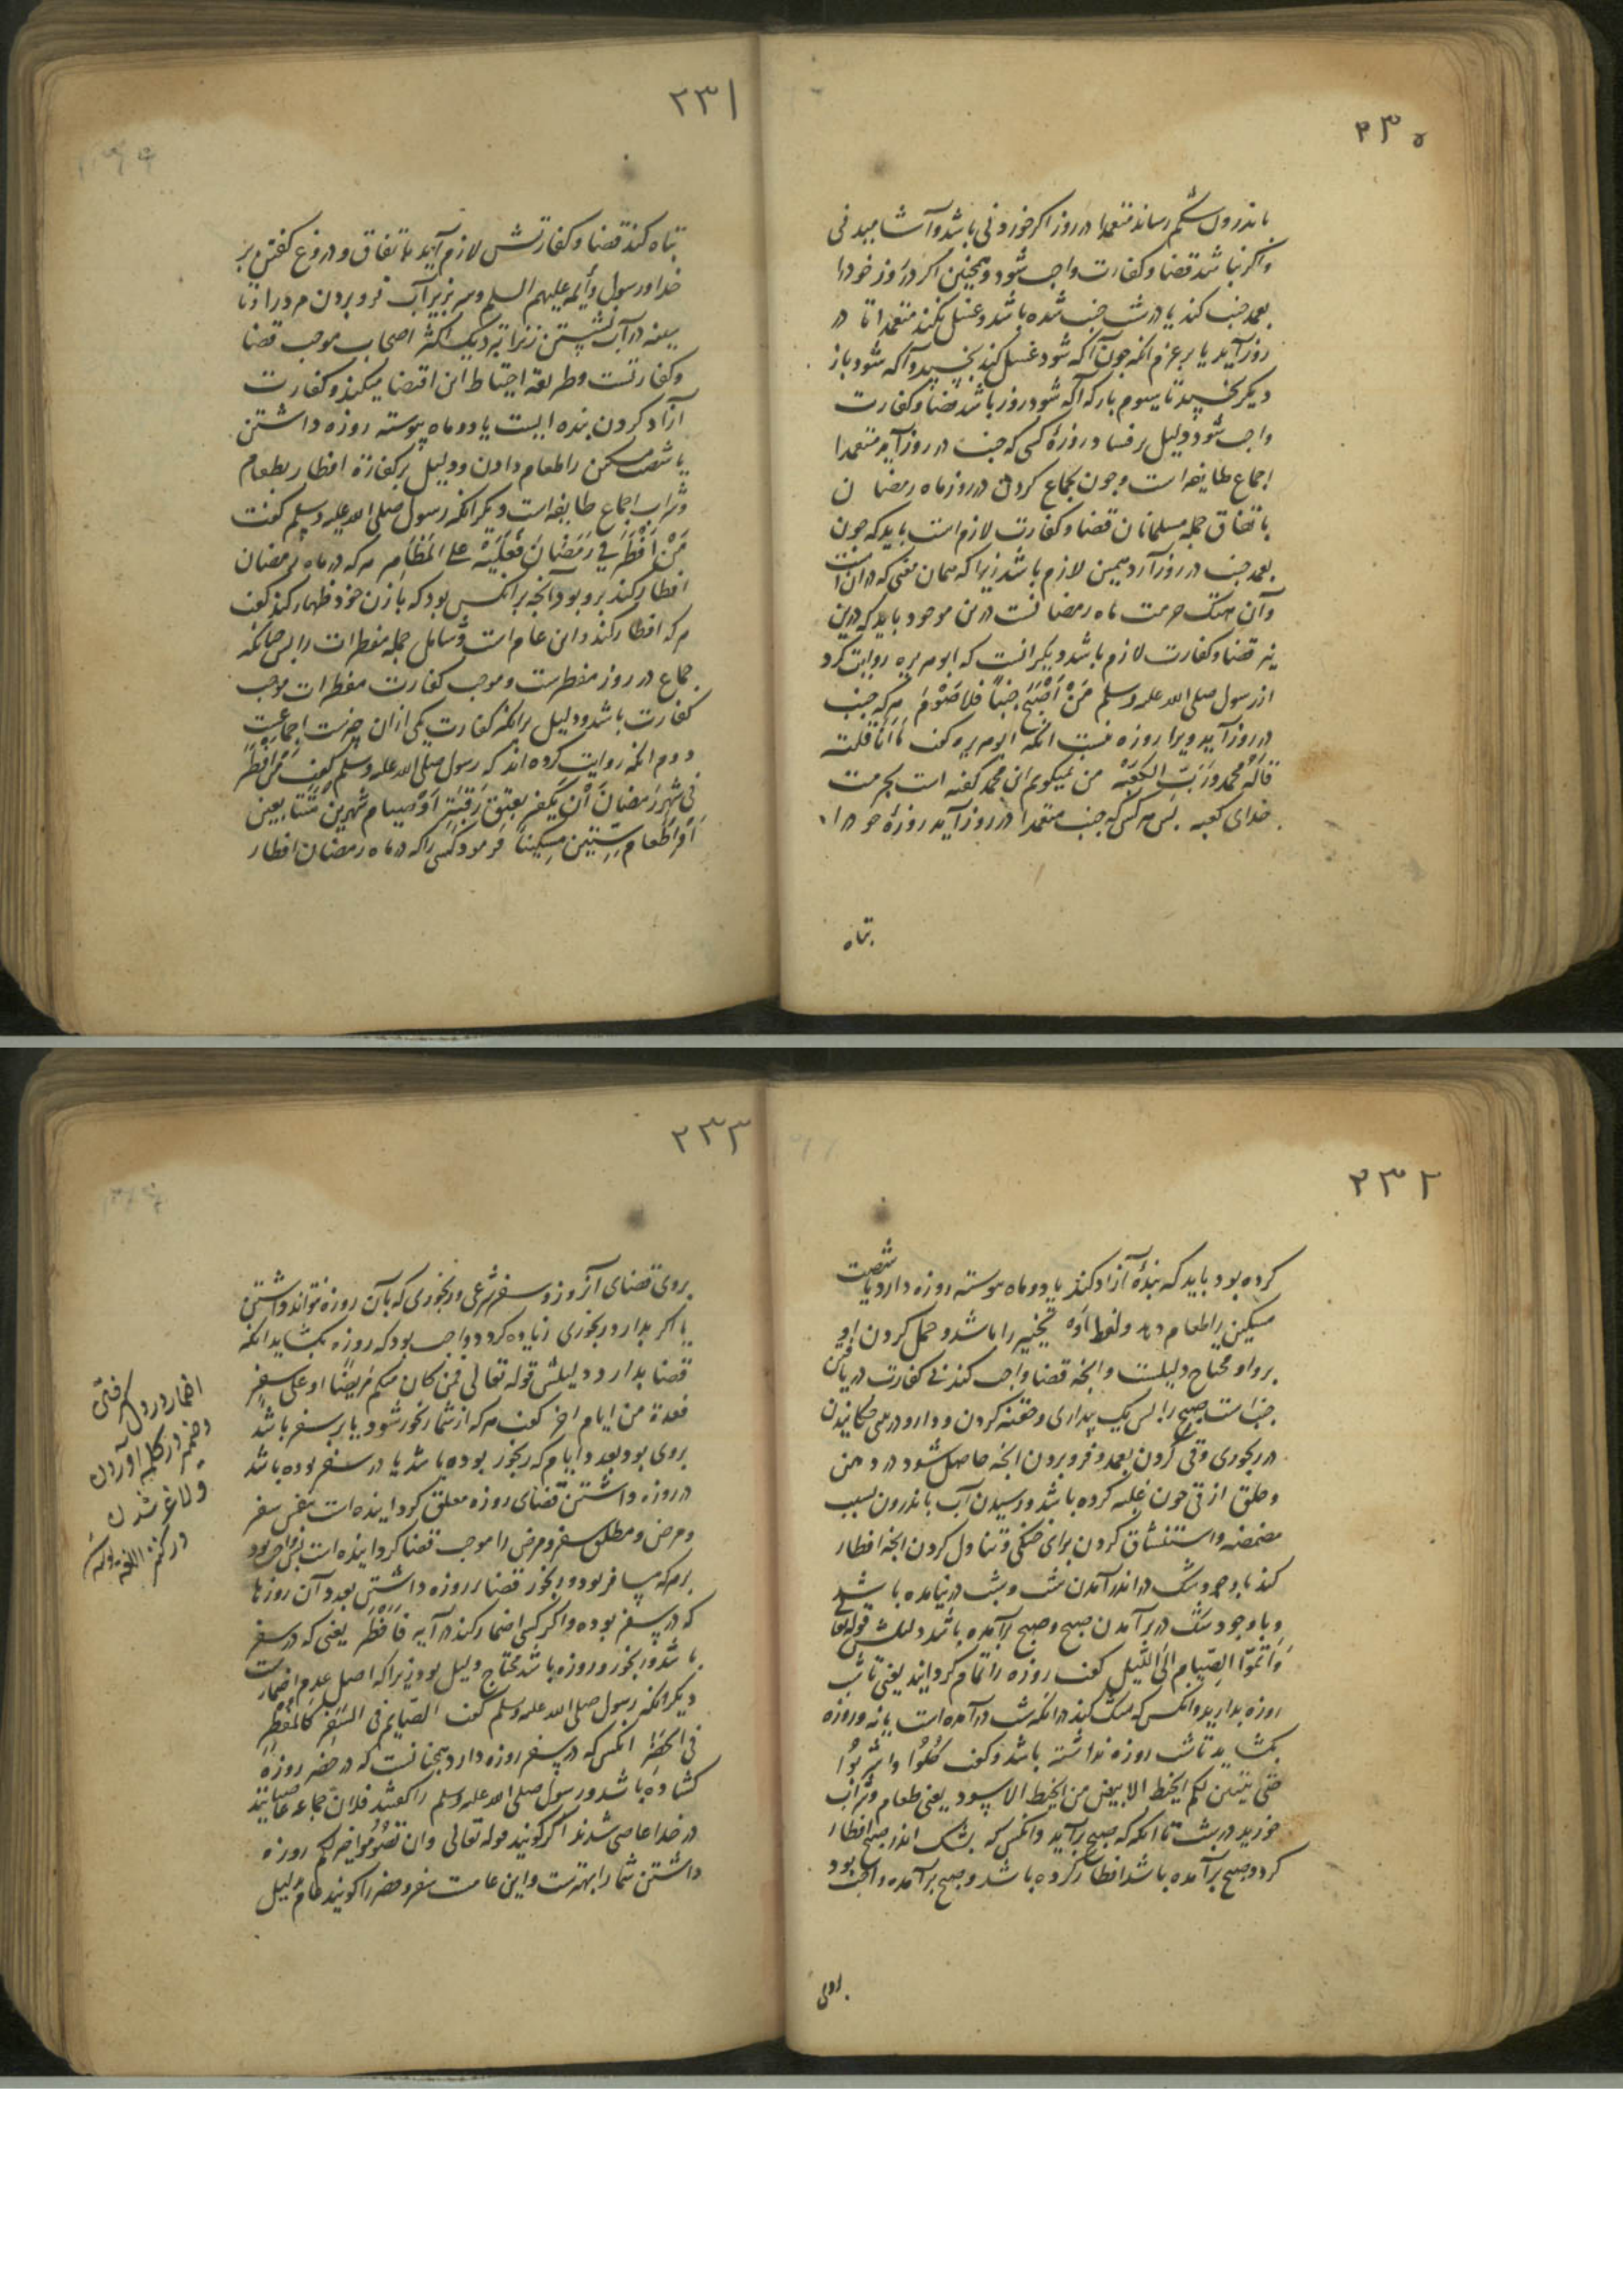 ۲۳۰
باندرون شکم رساند متعمدا در روز اکر خوردنی باشد و آشامیدنی
واکر نباشد قضا و کفارت واجب شود و همچنین اکر در روز خود را
بعمد جنب کند یا در شب جنب شده باشد و غسل نکند متعمدا تا در
روز آید یا بر عزم انکه چون آکه شود غسل کند بخسپد و آکه شود باز
دیکر بخسپد تا سوم بار که آکه شود روز باشد قضا و کفارت
واجب شود و دلیل بر فساد روزهٔ کسی که جنب در روز آید متعمدا
اجماع طایفه است و چون بجماع کردن در روز ماه رمضان
باتفاق جمله مسلمانان قضا و کفارت لازم است باید که چون
بعمد جنب در روز آرد همین لازم باشد زیرا که همان معنی که در آن است
وآن هتک حرمت ماه رمضانست درین موجود باید که درین
نیز قضا و کفارت لازم باشد دیکر انست که ابوهریره روایت کرد
از رسول صلی الله علیه وسلم مَنْ اَصْبَحَ جنباً فلا صَوْمَ هرکه جنب
در روز آید ویرا روزه نیست انکه ابوهریره کفت ما اَنَا قلته
قَالَهُ محمد وَرَبِّ الکَعْبَة من نمیکویم این محمد کفته است بحرمت
خدای کعبه پس هرکس که جنب متعمدا در روز آید روزهٔ خود را
تباه
۲۳۱
تباه کند قضا و کفارتش لازم آید باتفاق و دروغ کفتن بر
خدا و رسول و أیمه علیهم السلم و سر بزیر آب فرو بردن مرد را و تا
سینه در آب نشستن زن را بنزدیک اکثر اصحاب موجب قضا
وکفارتست و طریقه احتیاط این اقتضا میکند و کفارت
آزاد کردن بنده ایست یا دو ماه پیوسته روزه داشتن
یا شصت مسکین را طعام دادن و دلیل بر کفارة افطار بطعام
و شراب اجماع طایفه است دیکر انکه رسول صلی الله علیه وسلم کفت
مَنْ اَفْطَرَ فِی رَمَضَانَ فَعَلَیْهْ ما علی المُظَاهِر هرکه در ماه رمضان
افطار کند برو بود آنچه بر انکس بود که با زن خود ظهار کند کفت
هرکه افطار کند و این عام است و شامل جمله مفطرات را پس چنانکه
جماع در روز مفطرست و موجب کفارت مفطرات موجب
کفارت باشد و دلیل برانکه کفارت یکی ازان چیزست اجماعست
دوم انکه روایت کرده اند که رسول صلی الله علیه وسلم کفت مَن اَفْطَرَ
فی شَهْرِ رَمَضَانَ اَنْ یُکَفِّر بعِتق رَقَبَة اَوْ صِیام شَهْرین مُتَتَابعین
اَوْ اِطْعَام سِتّین مِسْکِیناً فرمود کسی را که در ماه رمضان افطار
۲۳۲
کرده بود باید که بندهٔ آزاد کند یا دو ماه پیوسته روزه دارد یا شصت
مسکین را طعام دهد و لفظ اَوْ تخییر را باشد و حمل کردن او
برو او محتاج دلیلست و انچه قضا واجب کند نه کفارت دریافتن
جنابت صبح را پس یک بیداری و حقنه کردن و دارو در چکانیدن
در رنجوری وقی کردن بعمد و فرو بردن انچه حاصل شود در دهن
و حلق از قی چون غلبه کرده باشد و رسیدن آب باندرون بسبب
مضمضه و استنشاق کردن برای خنکی و تناول کردن انچه افطار
کند با وجود شک در اندر آمدن شب و شب در نیامده باشد
وبا وجود شک در برآمدن صبح و صبح برآمده باشد دلیلش قوله تعالی
وَاَتِمُّوا الصِّیام اِلَی اللَّیل کفت روزه را تمام کردانید یعنی تا شب
روزه بدارید و انکس که شک کند در انکه شب در آمده است یا نه و روزه
بکشاید تا شب روزه نداشته باشد و کفت کُلُوا واشرَبُوا
حَتی یَتَبَیّن لکم الخیط الابیض من الخیط الاسود یعنی طعام و شراب
خورید در شب تا انکه که صبح برآید و انکس که بشک اندر صبح افطار
کرد و صبح برآمده باشد افطار کرده باشد و صبح برآمده و واجب بود
بروی
۲۳۳
بروی قضای آنروز و سفر شرعی و رنجوری که بآن روزه نتواند داشتن
یا اکر بدارد رنجوری زیاده کردد واجب بود که روزه بکشاید انکه
قضا بدارد و دلیلش قوله تعالی فمن کان منکم مَریضًا او علی سفر
فعدة من ایام اخر کفت هرکه از شما رنجور شود یا بر سفر باشد
بروی بود بعدد ایام که رنجور بوده باشد یا در سفر بوده باشد
در روزه داشتن قضای روزه معلق کردانیده است بنفس سفر
ومرض و مطلق سفر و مرض را موجب قضا کردانیده است پس واجب بود
برهرکه مسافر بود و رنجور قضا بر روزه داشتن بعدد آن روزها
که در سفر بوده و اکر کسی اضمار کند در آیه فَاَفْطَر یعنی که در سفر
باشد و رنجور و روزه باشد محتاج دلیل بود زیرا که اصل عدم اضمارست
دیکر انکه رسول صلی الله علیه وسلم کفت الصَّایم فی السَّفَرِ کَالمُفْطِرِ
فی الحَضَرِ انکس که در سفر روزه دارد همچنانست که در حضر روزه
کشاده باشد و رسول صلی الله علیه وسلم را کفتند فلان جماعه صایمند
در خدا عاصی شدند اکر کویند قوله تعالی وان تَصُومُوا خیر لکم روزه
داشتن شما را بهترست و این عامست سفر و حضر را کویند عام بدلیل
اضمار در دل کرفتن
وضمیر در کلمه آوردن
ولاغر شدن
در کنز اللغه